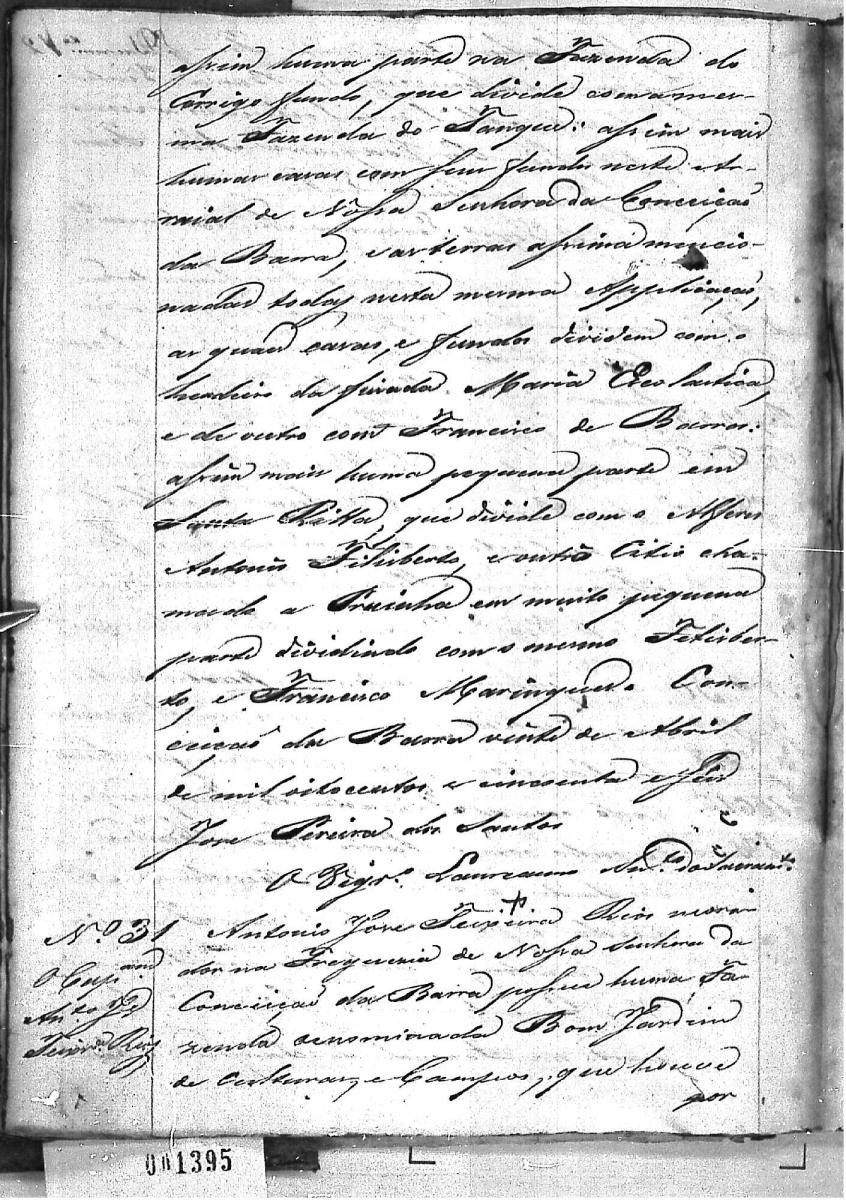 assim huma parte na Fazenda do
Corrigo fundo, que divide com a mes-
ma Fazenda do Tanque: assim mais
humas casas com seus fundos neste Ar-
raial de Nossa Senhora da Conceiçaõ
da Barra, e as terras assima mencio-
nadas todas nesta mesma Applicaçaõ,
as quaes casas, e fundos dividem com o
herdeiro da finada Maria Escolastica,
e de outro com Francisco de Barros:
assim mais huma pequena parte em
Santa Ritta, que divide com o Alferes
Antonio Filisberto, e outro Citio cha-
mado a Prainha em muito pequena
parte dividindo com o mesmo Felisber-
to, e Francisco Marinque do Con-
ceiçaõ da Barra vinte de Abril
de mil oitocentos e cincoenta e Seis
Jose Pereira dos Santos
O Vigr.º Laureanno do Sacram.to
N.º 31 Antonio Jose Teixeira Rios mora-
dor na Freguezia de Nossa Senhora da
Conceiçaõ da Barra possue huma Fa-
zenda denominada Bom Jardim
de culturas, e Campos, que houve
por
O Cap.am
An.to Jé
Teixr.a Rios
001395